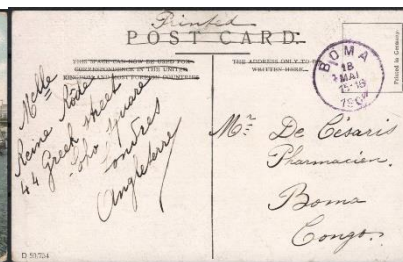 Printed
POST CARD.
THIS SPACE CAN NOW BE USED FOR
CORRESPONDENCE IN THE UNITED
KINGDOM AND MOST FOREIGN COUNTRIES
THE ADDRESS ONLY TO BE
WRITTEN HERE.
BOMA
18
MAI
15-16
Printed in Germany.
Melle
Reine Rode
44 Greek Street
Soho Square
Londres
Angleterre
Mr De Césaris
Pharmacien.
Boma
Congo.